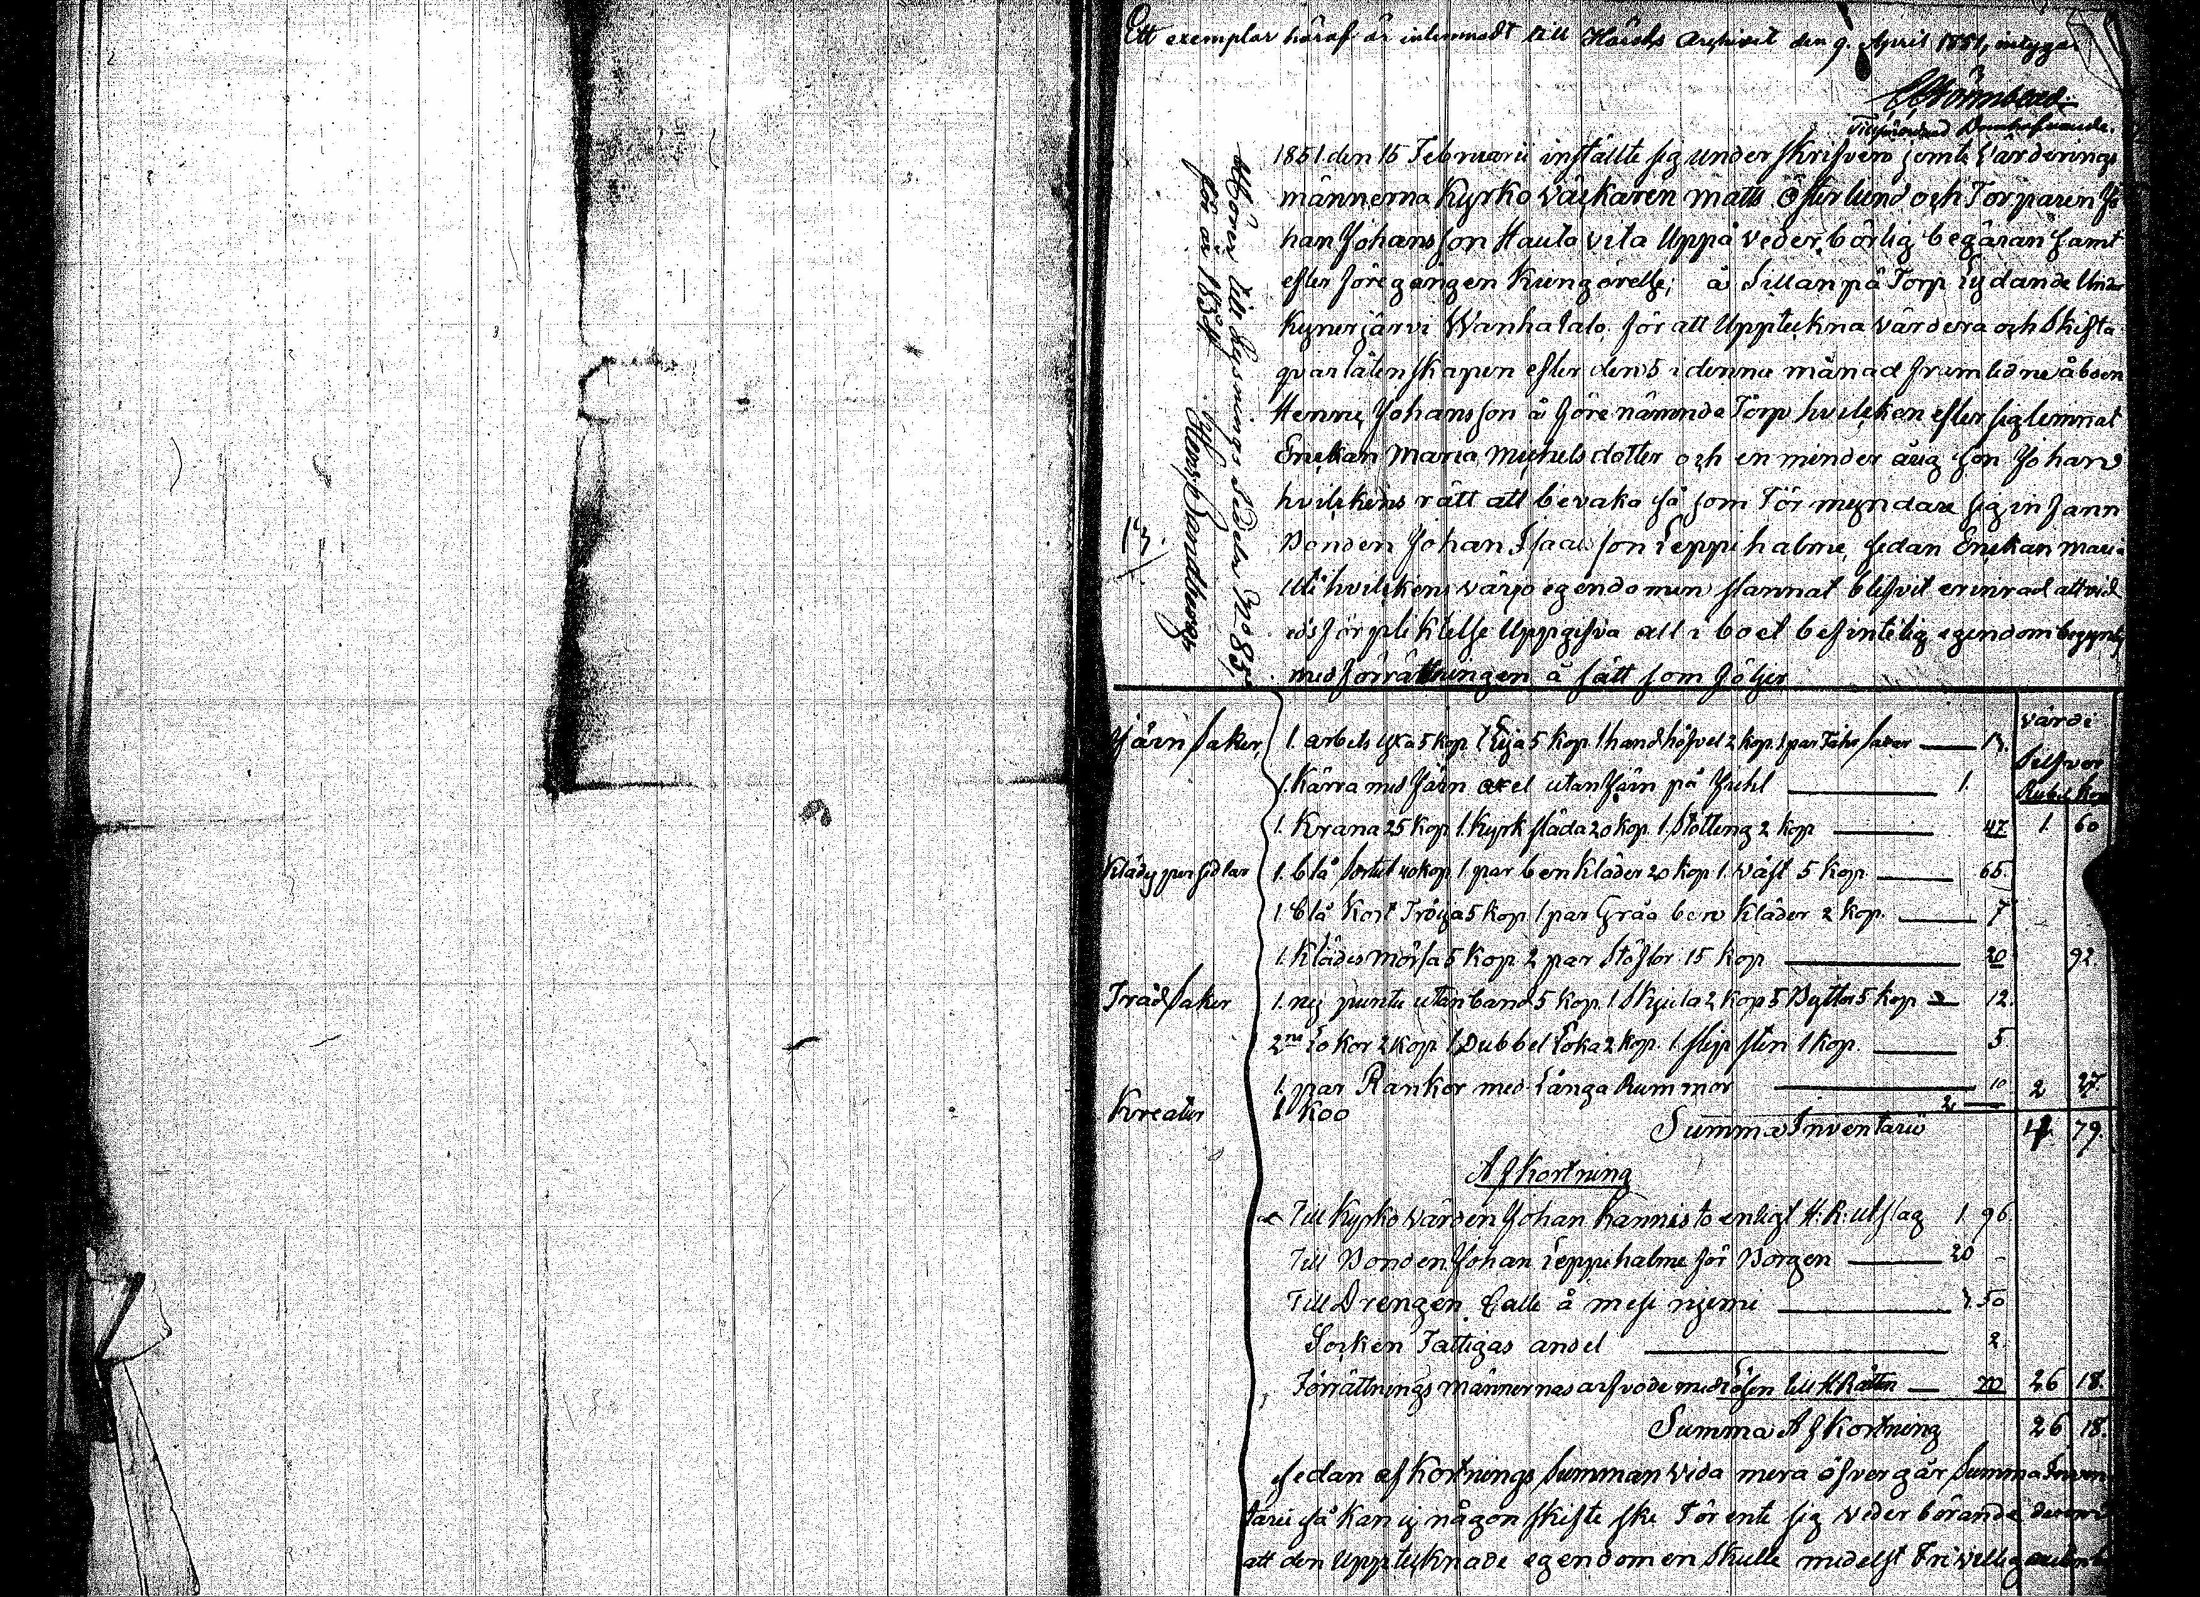 Ett exemplar häraf är inlemnadt till Härads Archivet den 9. April 1851, intygar
Tillförordnad Domhafvande.
1851 den 15 Februarii inställte sig underskrifven jemte Värderings
männerna Kyrko väckaren Matts Österlund och Torparen Jo
han Johansson Hautovita Uppå vederbörlig begäran samt
efter föregången Kungörelse, å Sillanpä Torp Lydande Under
Kynerjärvi Wanhatalo, för att Uppteckna värdera och Skifta
qvarlåtenskapen efter den 5 i denne månad framledne åboen
Henric Johansson å före nämnde Torp hvilcken efter sig lemnat
Enckan Maria Michelsdotter och en minder årig son Johan
hvilckens rätt att bevaka så som Förmyndare sig infann
Bonden Johan Isacsson Leppihalme, sedan Enckan Maria
Uti hvilckens värjo egendomen stannat blifvit erinrad att vid
edsförpliktelse Uppgifva all i boet befintelig egendom begynts
med förrättningen å sätt som följer
Hörer till Lysnings Sedeln No 83,
för år 1854
13.
värde
Silfver
Rubel Kop
Järn saker, 1. arbets yxa 5 kop. 1 Lija 5 kop. 1 handhöfvel 2 kop. 1 par Fåhrsaxar 13.
1. Kärra med Järn axel utan Järn på Juhl 1.
1. Krana 25 kop 1. Kyrk släda 20 kop. 1. Stötting 2 kop 47 1. 60
Klädyper sedlar 1. blå Sortut 40 kop 1 par benkläder 20 kop 1. väst 5 kop 65.
1. blå Kort Tröja 5 kop 1 par Gråa ben kläder 2 kop. 7
1. Klädes mössa 5 kop 2 par Stöflor 15 kop 20 92.
Träd saker 1. ny punta utan band 5 kop. 1 Skjula 2 kop 5 Byttor 5 kop 12.
2ne Lokor 2 kop 1 Dubbel Loka 2 kop. 1. slip sten 1 kop. 5
1. par Rankor med Långa Rummor 10 2 27.
Kreatur 1 Koo 2
Summa Inventarii 4. 79.
Afkortning
Till Kyrko värden Johan Rannisto enligt H: R: utslag 1 96
Till Bonden Johan Leppihalme för Borgen 20 -
Till Drengen Calle å 50
Socken Fattigas andel 2.
Förrättnings männernas arfvode med Lösen till H Rätten 26 18.
Summa Afkortning 26 18.
sedan afkortnings Summan vida mera öfvergår Summa Inven
tarii så kan ej någon skifte ske Förente sig vederbörande derom
att den Upptecknade egendomen Skulle medelst Frivillig